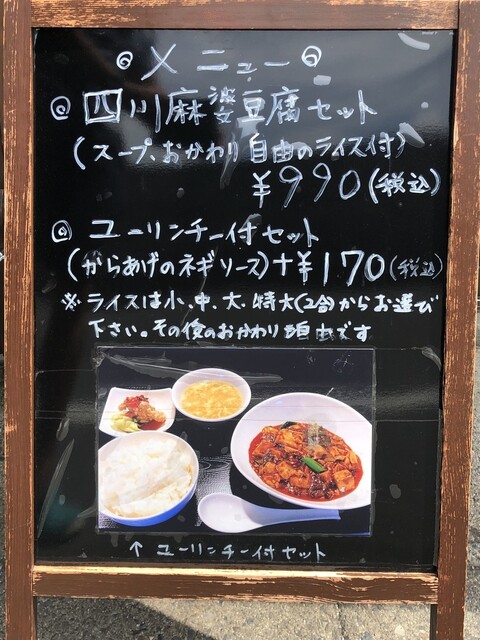 ◎メニュー◎
◎四川麻婆豆腐セット
(スープ、おかわり自由のライス付)
¥990(税込)
◎ユーリンチー付セット
(からあげのネギソース)+¥170(税込)
※ライスは小、中、大、特大(2合)からお選び
下さい。その後のおかわり自由です
↑ユーリンチー付セット